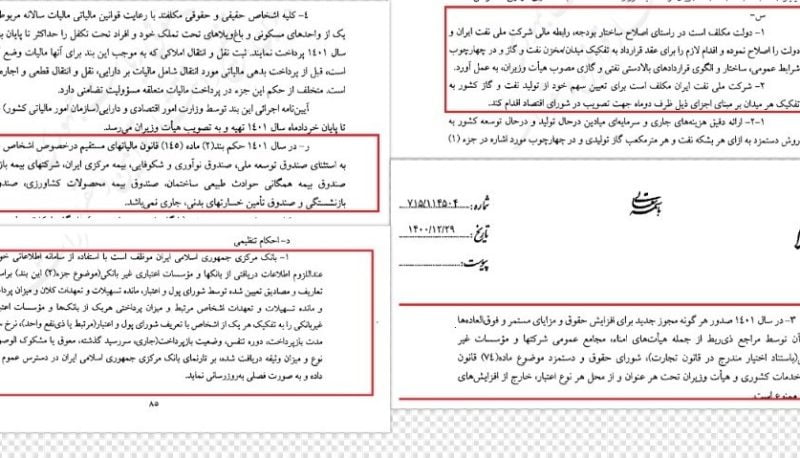 س-
۱- دولت مکلف است در راستای اصلاح ساختار بودجه، رابطه مالی شرکت ملی نفت ایران و
دولت را اصلاح نموده و اقدام لازم را برای عقد قرارداد به تفکیک میدان/مخزن نفت و گاز و در چهارچوب
شرایط عمومی، ساختار و الگوی قراردادهای بالادستی نفتی و گازی مصوب هیأت وزیران، به عمل آورد.
شرکت ملی نفت ایران مکلف است برای تعیین سهم خود از تولید نفت و گاز کشور به
تفکیک هر میدان بر مبنای اجزای ذیل ظرف دوماه جهت تصویب در شورای اقتصاد اقدام کند.
۱-۲- ارائه دقیق هزینه‌های جاری و سرمایه‌ای میادین درحال تولید و درحال توسعه کشور به
روش دستمزد به ازای هر بشکه نفت و هر مترمکعب گاز تولیدی و در چهارچوب مورد اشاره در جزء (۱)
۴- کلیه اشخاص حقیقی و حقوقی مکلفند با رعایت قوانین مالیاتی مالیات سالانه مربوط
یک از واحدهای مسکونی و باغ‌ویلاهای تحت تملک خود و افراد تحت تکفل را حداکثر تا پایان به
سال ۱۴۰۱ پرداخت نمایند. ثبت نقل و انتقال املاکی که به موجب این بند برای آنها مالیات وضع
است، قبل از پرداخت بدهی مالیاتی مورد انتقال شامل مالیات بر دارایی، نقل و انتقال قطعی و اجاره
است. متخلف از حکم این جزء در پرداخت مالیات متعلقه مسؤولیت تضامنی دارد.
آیین‌نامه اجرائی این بند توسط وزارت امور اقتصادی و دارایی(سازمان امور مالیاتی کشور)
تا پایان خردادماه سال ۱۴۰۱ تهیه و به تصویب هیأت وزیران می‌رسد.
ر- در سال ۱۴۰۱ حکم بند(۲) ماده (۱۴۵) قانون مالیاتهای مستقیم درخصوص اشخاص
به استثنای صندوق توسعه ملی، صندوق نوآوری و شکوفایی، بیمه مرکزی ایران، شرکتهای بیمه
صندوق بیمه همگانی حوادث طبیعی ساختمان، صندوق بیمه محصولات کشاورزی، صندوق
بازنشستگی و صندوق تأمین خسارتهای بدنی، جاری نمی‌باشد.
د- احکام تنظیمی
۱- بانک مرکزی جمهوری اسلامی ایران موظف است با استفاده از سامانه اطلاعاتی خود
عنداللزوم اطلاعات دریافتی از بانکها و مؤسسات اعتباری غیر بانکی(موضوع جزء(۲) این بند) براساس
تعاریف و مصادیق تعیین شده توسط شورای پول و اعتبار، مانده تسهیلات و تعهدات کلان و میزان
و مانده تسهیلات و تعهدات اشخاص مرتبط و میزان پرداختی هریک از بانک‌ها و مؤسسات
غیربانکی را به تفکیک هر یک از اشخاص با تعریف شورای پول و اعتبار(مرتبط یا ذی‌نفع واحد)، نرخ
مدت بازپرداخت، دوره تنفس، وضعیت بازپرداخت(جاری، سررسید گذشته، معوق یا مشکوک الوصول)
نوع و میزان وثیقه دریافت شده، بر تارنمای بانک مرکزی جمهوری اسلامی ایران در دسترس عموم
داده و به صورت فصلی به‌روزرسانی نماید.
۸۵
باسمه تعالی
شماره: ۷۱۵/۱۱۴۵۰۴
تاریخ: ۱۴۰۰/۱۲/۲۹
پیوست:
۳- در سال ۱۴۰۱ صدور هر گونه مجوز جدید برای افزایش حقوق و مزایای مستمر و فوق‌العاده‌ها
آن توسط مراجع ذی‌ربط از جمله هیأت‌های امناء، مجامع عمومی شرکتها و مؤسسات غیر
(باستناد اختیار مندرج در قانون تجارت)، شورای حقوق و دستمزد موضوع ماده(۷۴) قانون
خدمات کشوری و هیأت وزیران تحت هر عنوان و از محل هر نوع اعتبار، خارج از افزایش‌های
ممنوع است.